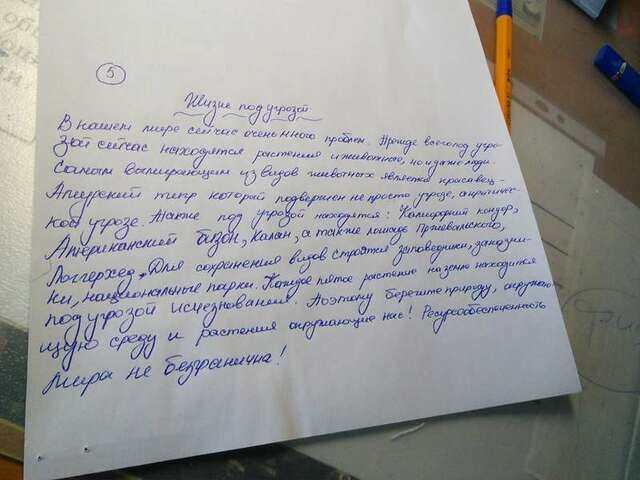 5
Жизнь под угрозой
В нашем мире сейчас очень много проблем. Прежде всего под угро-
зой сейчас находятся растения и животные, но и даже люди.
Самым вымирающим из видов животных является красавец -
Амурский тигр который подвержен не просто угрозе, а критичес-
кой угрозе. Также под угрозой находятся: Калифорний кондор,
Американский бизон, Калан, а также лошадь Пржевальского,
Логгерхед. Для сохранения видов строятся заповедники, заказни-
ки, национальные парки. Каждое пятое растение на земле находится
под угрозой исчезновения. Поэтому берегите природу, окружаю-
щую среду и растения окружающие нас! Ресурсообеспеченность
мира не безгранична!